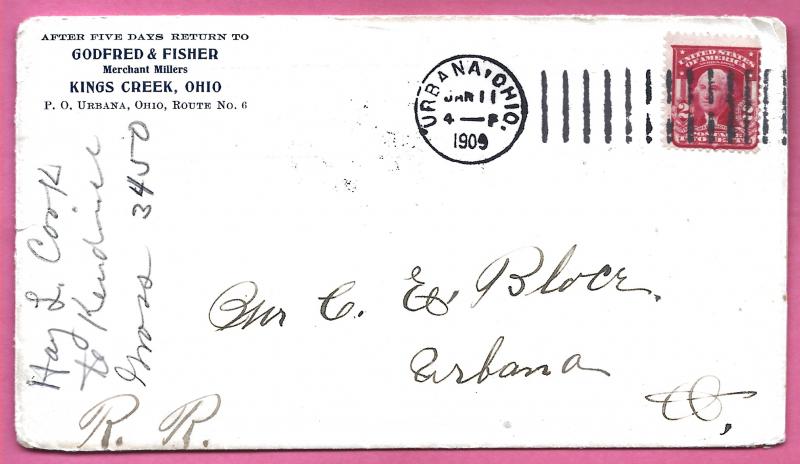 AFTER FIVE DAYS RETURN TO
GODFRED & FISHER
Merchant Millers
KINGS CREEK, OHIO
P. O. URBANA, OHIO, ROUTE NO. 6
URBANA, OHIO.
JAN 11
4 — P
1909
UNITED STATES
OF AMERICA
Hay L. Cook
to
Gross 3450
Mr C. E. Block.
Urbana
O,
R. R.